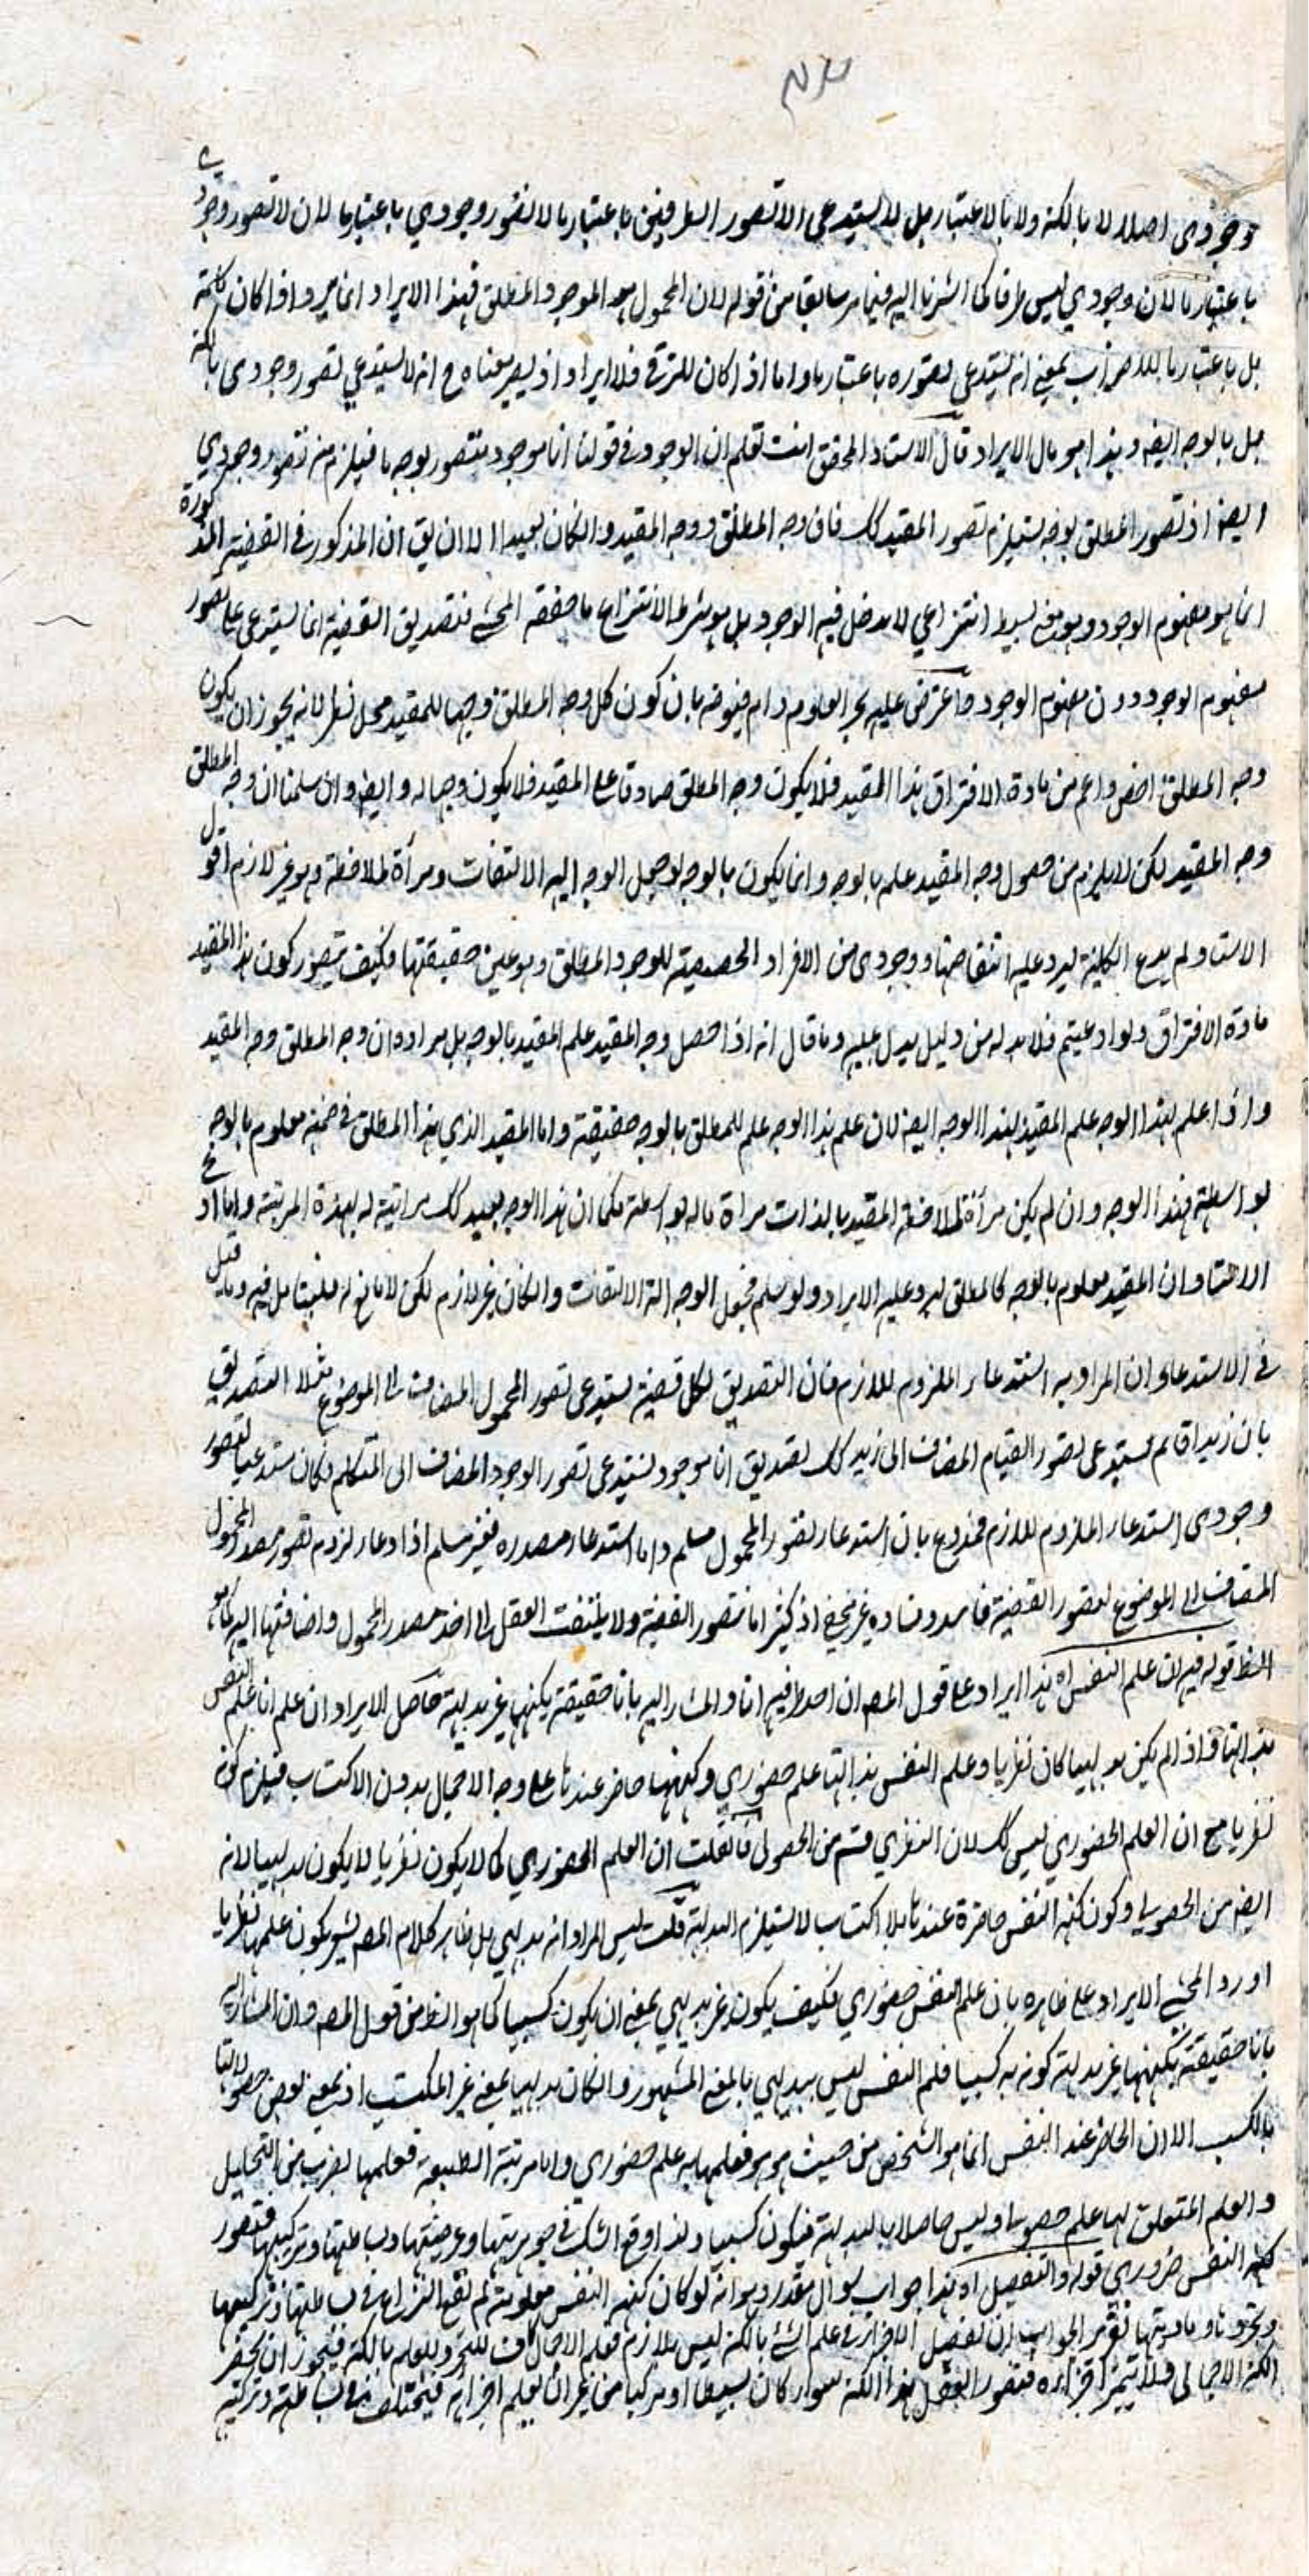 وجودى اصلا لا بالكنه ولا بالاعتبار بل لا يستدعى الا تصور الطرفين باعتبار ما لا تصور وجودي باعتبار ما لان لا تصور وجودي
باعتبار ما لان وجودي ليس طرفا كما اشرنا اليه فيما مر سابقا من قوله لان المحمول هو الموجود المطلق فهذا الايراد انما يرد اذا كان كلمة
بل باعتبار ما للاضراب بمعنى انه يستدعى تصوره باعتبار ما واما اذا كان للترقى فلا ايراد اذ يصير معناه ح انه لا يستدعي تصور وجودى بالكنه
بل بالوجه ايضا وهذا هو مال الايراد قال الاستاذ المحقق انت تعلم ان الوجود فى قولنا انا موجود متصور بوجه ما فيلزم منه تصور وجودي
ايضا اذ تصور المطلق بوجه يستلزم تصور المقيد كك فان وجه المطلق وجه المقيد وان كان بعيدا الا ان يق ان المذكور فى القضية المذكورة
انما هو مفهوم الموجود وهو بسيط انتزاعي لا يدخل فيه الوجود بل هو شرط الانتزاع ما حققه المحشى فتصديق القضية انما يستدعى تصور
مفهوم الموجود دون مفهوم الوجود واعترض عليه بحر العلوم دام فيوضه بان كون كل وجه المطلق وجها للمقيد محل نظر لانه يجوز ان يكون
وجه المطلق اخص واعم من مادة الافتراق هذا المقيد فلا يكون وجه المطلق صادقا على المقيد فلا يكون وجها له وايضا وان سلمنا ان وجه المطلق
وجه المقيد لكن لا يلزم من حصول وجه المقيد علم بالوجه وانما يكون بالوجه لو جعل الوجه الة الالتفات ومرآة لملاحظة وهو غير لازم اقول
الاستاد لم يدع الكلية ليرد عليه انتقاضها ووجودى من الافراد الحصصية للوجود المطلق وهو عين حقيقتها فكيف يتصور كون هذا المقيد
مادة الافتراق ولو ادعيتم فلا بد له من دليل يدل عليه وما قال انه اذا حصل وجه المقيد علم المقيد بالوجه بل مراده ان وجه المطلق وجه المقيد
واذا علم بهذا الوجه علم المقيد بهذا الوجه ايضا لان علم هذا الوجه علم للمطلق بالوجه حقيقة واما المقيد الذي هذا المطلق فى ضمنه معلوم بالوجه
بواسطة فهذا الوجه وان لم يكن مرآة لملاحظة المقيد بالذات مرآة ما له بواسطة فكما ان هذا الوجه بعيد كك مراتية له بهذه المرتبة وما ادعى
الاستاد ان المقيد معلوم بالوجه كالمطلق ليرد عليه الايراد ولو سلم فجعل الوجه الة الالتفات وان كان غير لازم لكن لا مانع له فليتامل فيه وما قيل
فى الاستدعاء ان المراد به استدعاء الملزوم للازم فان التصديق لكل قضية يستدعى تصور المحمول المضاف الى الموضوع مثلا التصديق
بان زيدا قائم يستدعى تصور القيام المضاف الى زيد كك تصديق انا موجود يستدعى تصور الوجود المضاف الى المتكلم فكان مستدعيا لتصور
وجودى استدعاء الملزوم للازم فمدفوع بان استدعاء تصور المحمول مسلم واما استدعاء مصدره فغير مسلم اذ ادعاء لزوم تصور مصدر المحمول
المضاف الى الموضوع لتصور القضية فاسد وفساده غير خفى اذ كثيرا ما نتصور القضية ولا يلتفت العقل الى اخذ مصدر المحمول واضافتها اليه
قوله فيه ان علم النفس اه هذا ايراد على قول المص ان احد طرفيه انا والمشار اليه بانا حقيقة بكنهها غير بديهية حاصل الايراد ان علم انا علم النفس
بذاتها فاذا لم يكن بديهيا كان نظريا وعلم النفس بذاتها علم حضوري وكنهها حاضر عندنا على وجه الاجمال بدون الاكتساب فيلزم كونه
نظريا مع ان العلم الحضوري ليس كك لان النظري قسم من الحصولى فان قلت ان العلم الحضوري كما لا يكون نظريا لا يكون بديهيا لانه
ايضا من الحصولى وكون كنه النفس حاضرة عندنا بلا اكتساب لا يستلزم البداهة قلت ليس المراد انه بديهي بل ظاهر كلام المص يشير بكون علمها نظريا
اورد المحشى الايراد على ظاهره بان علم النفس حضوري فكيف يكون غير بديهي بمعنى ان يكون كسبيا كما هو الظ من قول المص وان المشار اليه
بانا حقيقة بكنهها غير بديهة كونه به كسبيا فلم النفس ليس ببديهي بالمعنى المشهور وان كان بديهيا بمعنى غير المكتسب
بالكسب الا ان الحاضر عند النفس انما هو الشخص من حيث هو هو فعلمها به علم حضوري واما مرتبة الطبيعة فعلمها بضرب من التحليل
والعلم المتعلق بها علم حصولى وليس حاصلا بالبديهة فيكون كسبيا ولذا وقع الشك فى جوهريتها وعرضيتها وبساطتها وتركيبها فتصور
كنه النفس ضروري قوله والتفصيل اه هذا جواب سوال مقدر وهو انه لو كان كنه النفس معلومة لم يقع النزاع فى بساطتها وتركيبها
وتجردها وماديتها تقرير الجواب ان تفصيل الاجزاء فى علم الشئ بالكنه ليس بلازم فعلم الاجمال كاف للعلم بالكنه فيجوز ان يحضر
الكنه الاجمالى فلا يتميز اجزاءه فتصور العقل بهذا الكنه سواء كان بسيطا او مركبا من غير ان يعلم اجزائه فيختلف فى بساطته وتركيبه